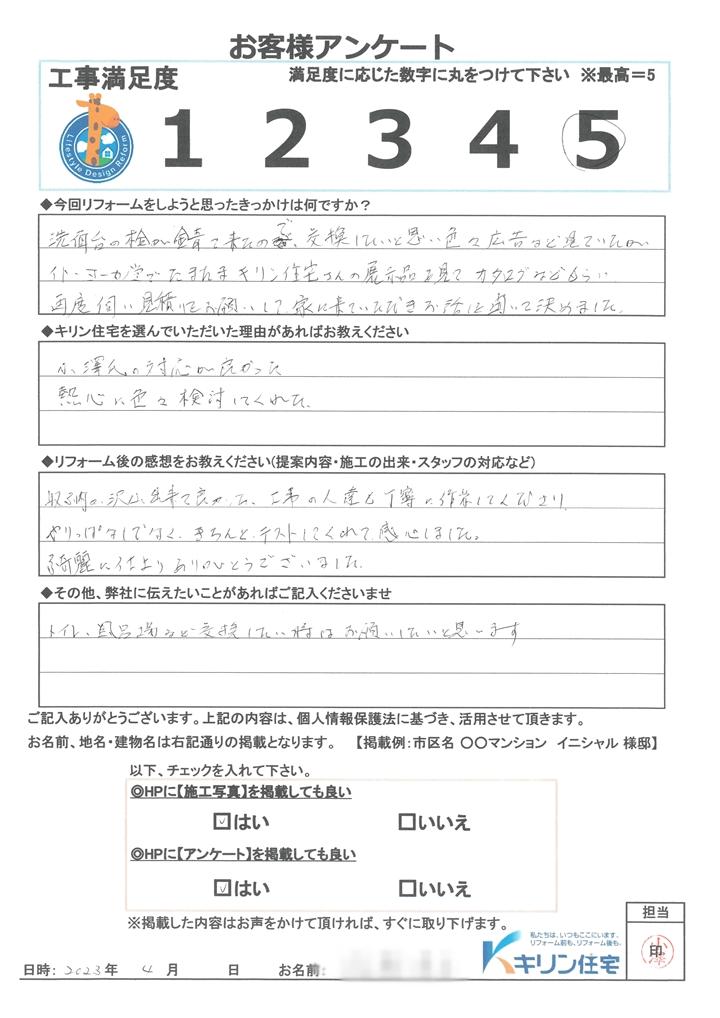 お客様アンケート
工事満足度
満足度に応じた数字に丸をつけて下さい ※最高＝5
Lifestyle Design Reform
1 2 3 4 5
◆今回リフォームをしようと思ったきっかけは何ですか？
洗面台の栓が錆て来たので、交換したいと思い色々広告など見ていたが
イトーヨーカ堂でたまたまキリン住宅さんの展示品を見てカタログなどもらい
再度伺い見積りをお願いして、家に来ていただきお話を聞いて決めました。
◆キリン住宅を選んでいただいた理由があればお教えください
小澤氏の対応が良かった
熱心に色々検討してくれた。
◆リフォーム後の感想をお教えください(提案内容・施工の出来・スタッフの対応など)
収納が沢山出来て良かった、工事の人達も丁寧に作業してくださり
やりっぱなしでなく、きちんとテストしてくれて感心しました。
綺麗に仕上りありがとうございました
◆その他、弊社に伝えたいことがあればご記入くださいませ
トイレ、風呂場など交換したい時はお願いしたいと思います
ご記入ありがとうございます。上記の内容は、個人情報保護法に基づき、活用させて頂きます。
お名前、地名・建物名は右記通りの掲載となります。 【掲載例：市区名 〇〇マンション イニシャル 様邸】
以下、チェックを入れて下さい。
◎HPに【施工写真】を掲載しても良い
☑はい □いいえ
◎HPに【アンケート】を掲載しても良い
☑はい □いいえ
※掲載した内容はお声をかけて頂ければ、すぐに取り下げます。
担当
印
小澤
私たちは、いつもここにいます。
リフォーム前も、リフォーム後も。
キリン住宅
日時： 2023年 4月 日 お名前：